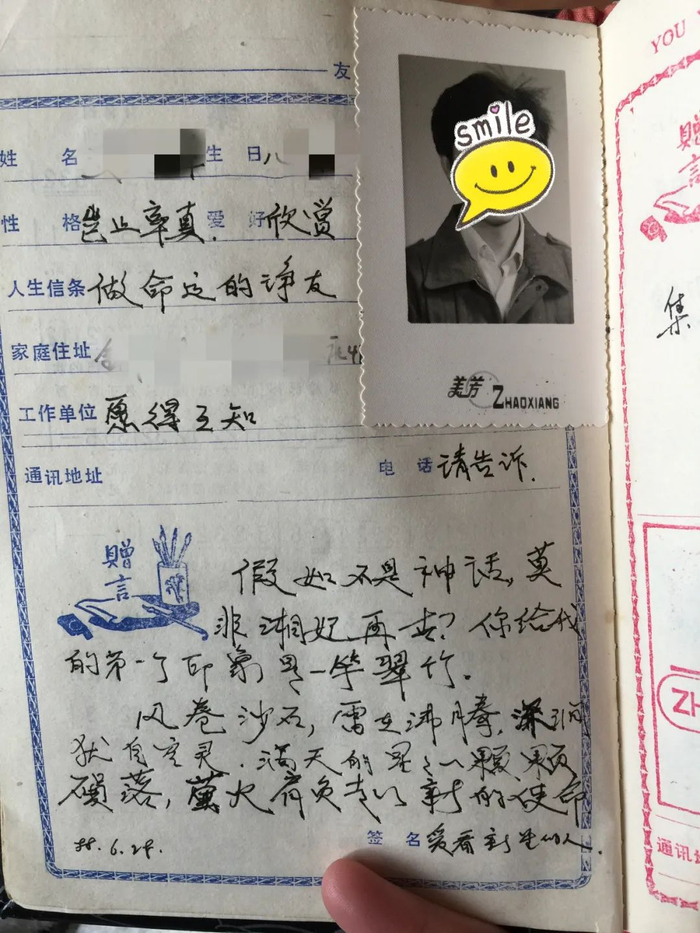 友
YOU
姓 名 生 日 八
smile
性 格 豈止率真. 爱 好 欣赏
赠言
人生信条 做命定的诤友
集
家庭住址
美芳 ZHAOXIANG
工作单位 愿得互知
通讯地址 电 话 请告诉.
赠言
假如不是神话,莫
非湘妃再世?你给我
的第一个印象是一竿翠竹.
风卷沙石,雷在沸腾,深涧
自空灵.满天的星星一颗颗
陨落,萤火肩负着新的使命
88.6.24. 签 名 爱看新生的人.
ZH
通讯地